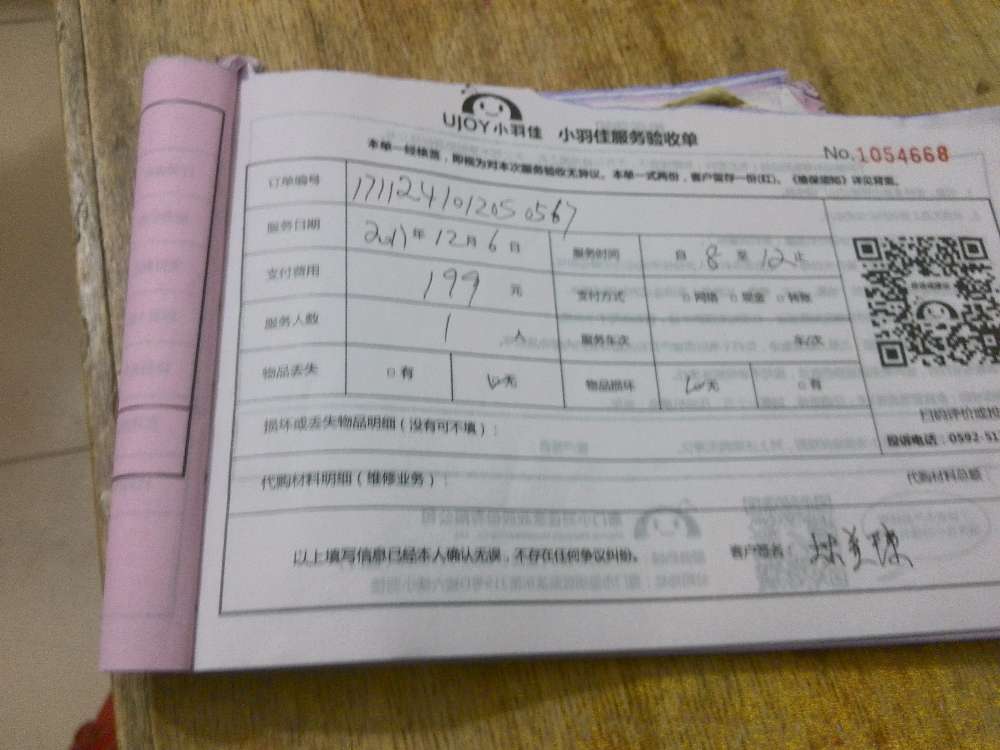 UJOY小羽佳 小羽佳服务验收单
No.1054668
本单一经核签，即视为对本次服务验收无异议。本单一式两份，客户留存一份(红)。《维保须知》详见背面。
订单编号 171124101205 0567
服务日期 2017年12月6日 服务时间 自 8 至 12 止
支付费用 199 元 支付方式 □网络 □现金 □转账
服务人数 1 人 服务车次 车/次
物品丢失 □有 ☑无 物品损坏 ☑无 □有
扫码评价或投
损坏或丢失物品明细（没有可不填）：
投诉电话：0592-51
代购材料明细（维修业务）：
代购材料总额
以上填写信息已经本人确认无误，不存在任何争议纠纷。 客户签名：